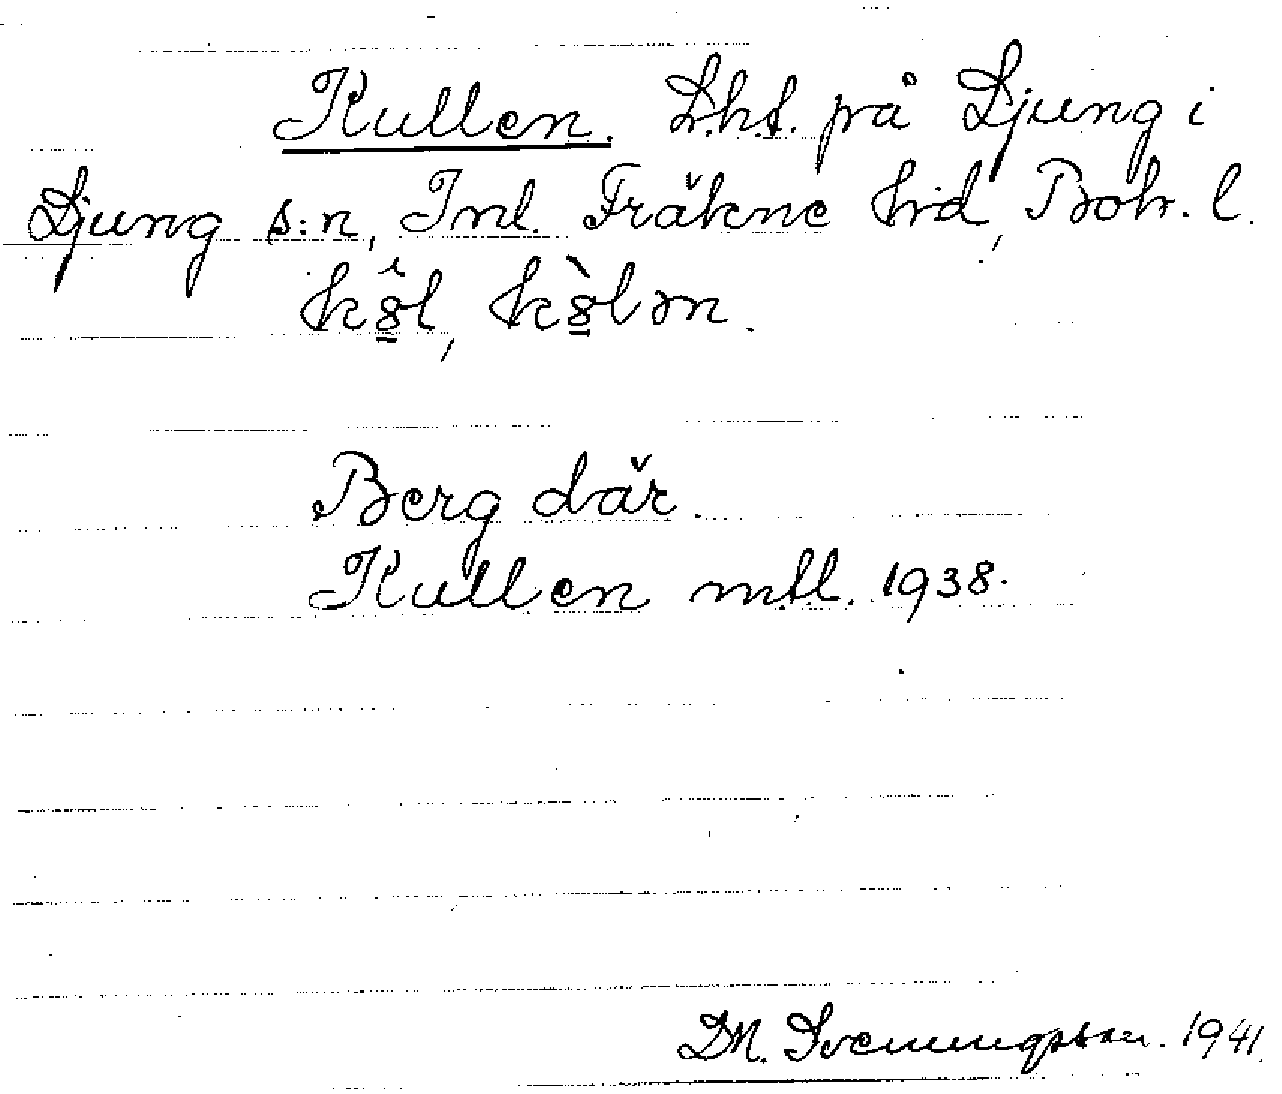 Kullen. L.h.t. på Ljung i
Ljung s:n, Inl. Fräkne hrd, Boh. l.
Berg där.
Kullen mtl. 1938.
D.N. Svenungsson. 1941.